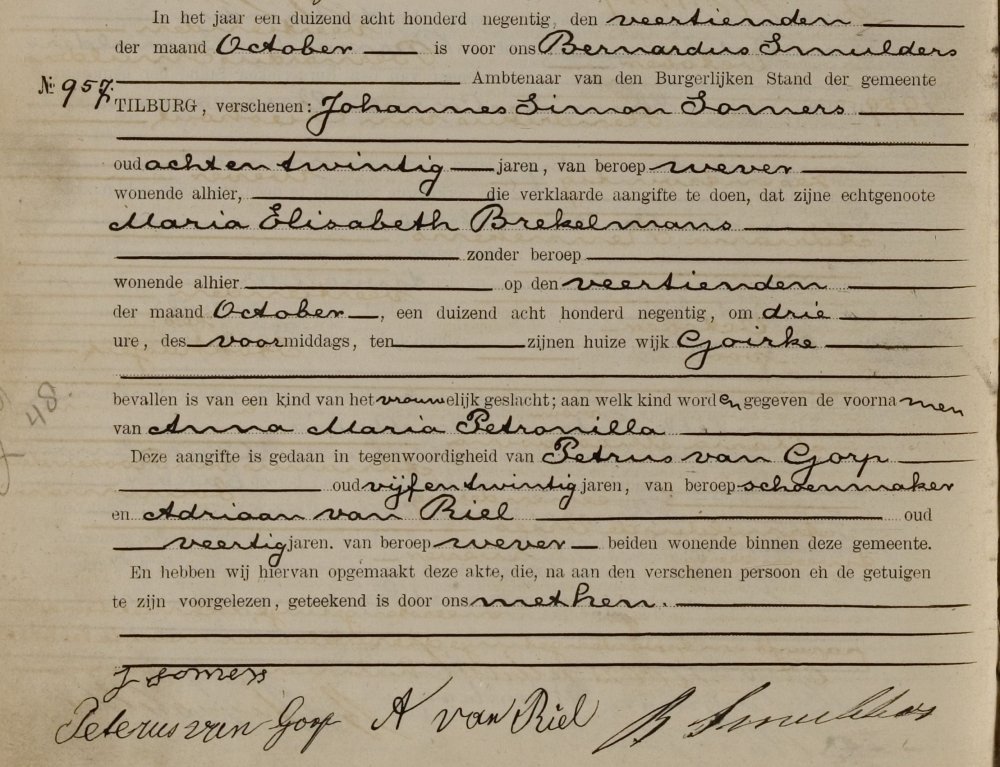 In het jaar een duizend acht honderd negentig, den veertienden
der maand October is voor ons Bernardus Smulders
№ 957. Ambtenaar van den Burgerlijken Stand der gemeente
TILBURG, verschenen: Johannes Simon Somers
oud achtentwintig jaren, van beroep wever
wonende alhier, die verklaarde aangifte te doen, dat zijne echtgenoote
Maria Elisabeth Brekelmans
zonder beroep
wonende alhier op den veertienden
der maand October, een duizend acht honderd negentig, om drie
ure, des voormiddags, ten zijnen huize wijk Goirke
48.
bevallen is van een kind van het vrouwelijk geslacht; aan welk kind worden gegeven de voornamen
van Anna Maria Petronilla
Deze aangifte is gedaan in tegenwoordigheid van Petrus van Gorp
oud vijfentwintig jaren, van beroep schoenmaker
en Adriaan van Riel oud
veertig jaren. van beroep wever beiden wonende binnen deze gemeente.
En hebben wij hiervan opgemaakt deze akte, die, na aan den verschenen persoon en de getuigen
te zijn voorgelezen, geteekend is door ons met hen.
J Somers
Peterus van Gorp A van Riel B Smulders